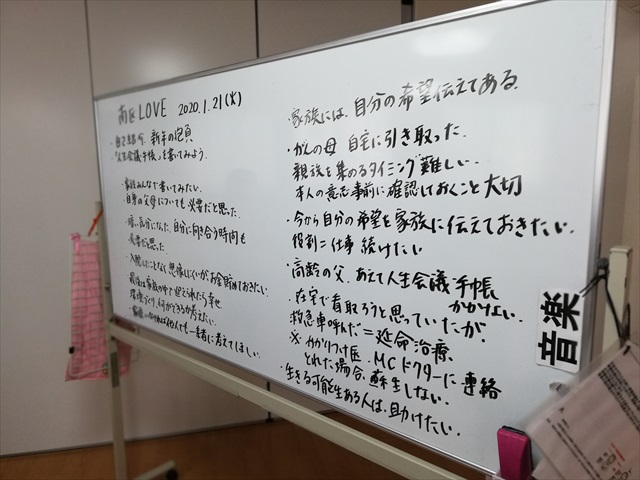 南区 LOVE 2020.1.21(火)
・自己紹介、新年の抱負
・「人生会議手帳」を書いてみよう.
・家族みんなで書いてみたい.
・自身の父母についても必要だと思った.
・暗い気分になった. 自分に向き合う時間も
必要だと思った
・入院したことなく想像しにくいが、お金貯めておきたい.
最後は家族の中で迎えられたら幸せ
環境づくり、何ができるか考えたい.
他人でも一緒に考えてほしい.
家族には、自分の希望伝えてある.
・がんの母 自宅に引き取った.
親族を集めるタイミング難しい.
本人の意志事前に確認しておくこと大切
・今から自分の希望を家族に伝えておきたい.
役割=仕事 続けたい
・高齢の父、あえて人生会議手帳
かかない.
・在宅で看取ろうと思っていたが、
救急車呼んだ=延命治療、
※ かかりつけ医、MCドクターに連絡
とれた場合、蘇生しない.
・生きる可能性ある人は、助けたい.
音楽